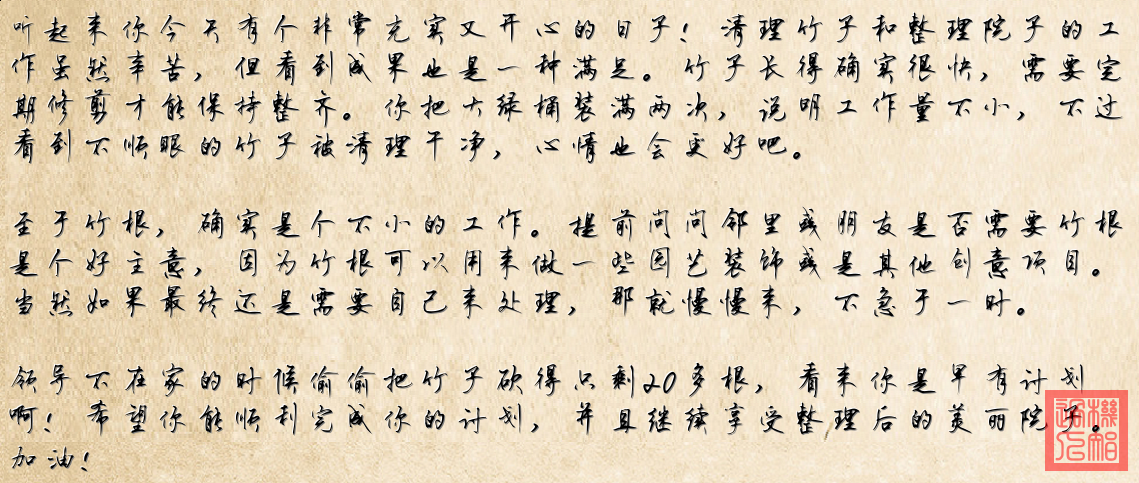 听起来你今天有个非常充实又开心的日子！清理竹子和整理院子的工
作虽然辛苦，但看到成果也是一种满足。竹子长得确实很快，需要定
期修剪才能保持整齐。你把大绿桶装满两次，说明工作量不小，不过
看到不顺眼的竹子被清理干净，心情也会更好吧。
至于竹根，确实是个不小的工作。提前问问邻里或朋友是否需要竹根
是个好主意，因为竹根可以用来做一些园艺装饰或是其他创意项目。
当然如果最终还是需要自己来处理，那就慢慢来，不急于一时。
领导不在家的时候偷偷把竹子砍得只剩20多根，看来你是早有计划
啊！希望你能顺利完成你的计划，并且继续享受整理后的美丽院子。
加油！